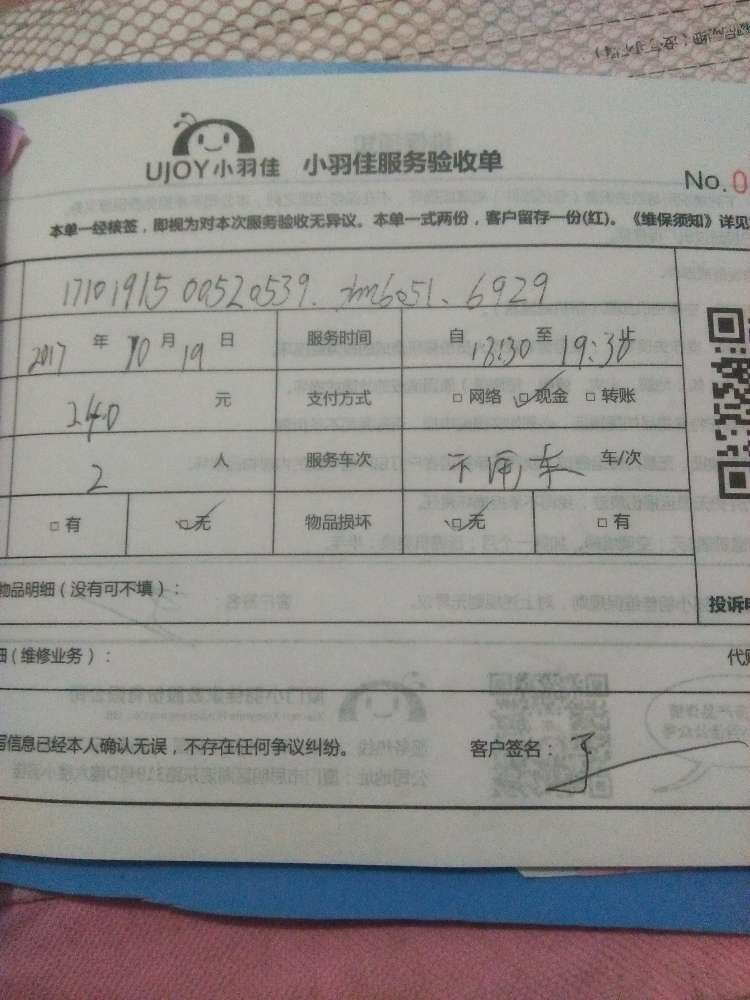 UJOY小羽佳 小羽佳服务验收单
No.0
本单一经核签，即视为对本次服务验收无异议。本单一式两份，客户留存一份(红)。《维保须知》详见
1710191500520539. jm6051. 6929
2017 年 10 月 19 日 服务时间 自 18:30 至 19:30 止
240 元 支付方式 □ 网络 ☑现金 □ 转账
2 人 服务车次 不用车 车/次
□ 有 ☑无 物品损坏 ☑无 □ 有
物品明细（没有可不填）：
投诉电
细（维修业务）：
代购
写信息已经本人确认无误，不存在任何争议纠纷。 客户签名：